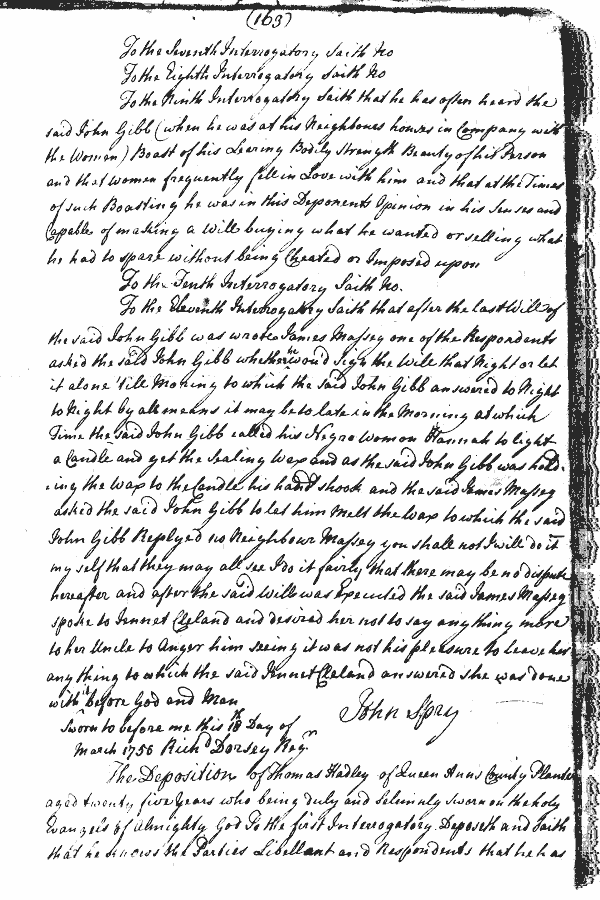 (163)
To the Seventh Interrogatory saith No
To the Eighth Interrogatory Saith No
To the Ninth Interrogatory Saith that he has often heard the
said John Gibb (when he was at his Neighbours houses in Company with
the Women) Boast of his Learning Bodily Strength Beauty of his Person
and that Women frequently fell in Love with him and that at the Times
of such Boasting he was in this Deponents Opinion in his Senses and
Capable of making a Will buying what he wanted or selling what
he had to spare without being Cheated or Imposed upon
To the Tenth Interrogatory Saith No.
To the Eleventh Interrogatory Saith that after the last Will of
the said John Gibb was wrote James Massey one of the Respondents
asked the said John Gibb whether he would sign the Will that Night or let
it alone 'till Morning to which the said John Gibb answered to Night
to Night by all means it may be to late in the Morning at which
Time the said John Gibb called his Negro Woman Hannah to light
a Candle and get the Sealing Wax and as the said John Gibb was hold-
ing the Wax to the Candle his hand shook and the said James Massey
asked the said John Gibb to let him Melt the Wax to which the said
John Gibb Replyed no Neighbour Massey you shall not I will do it
my self that they may all see I do it fairly that there may be no dispute
hereafter and after the said Will was Executed the said James Massey
spoke to Jennet Cleland and desired her not to say any thing more
to her Uncle to Anger him seeing it was not his pleasure to leave her
any thing to which the said Jennet Cleland answered she was done
with before God and Man
John Spry
Sworn to before me this 18th Day of
March 1756 Richd Dorsey Regr
The Deposition of Thomas Hadley of Queen Anns County Planter
aged twenty five Years who being duly and Solemnly sworn on the holy
Evangels of Almighty God To the first Interrogatory Deposeth and Saith
that he knows the Parties Libellant and Respondents that he has